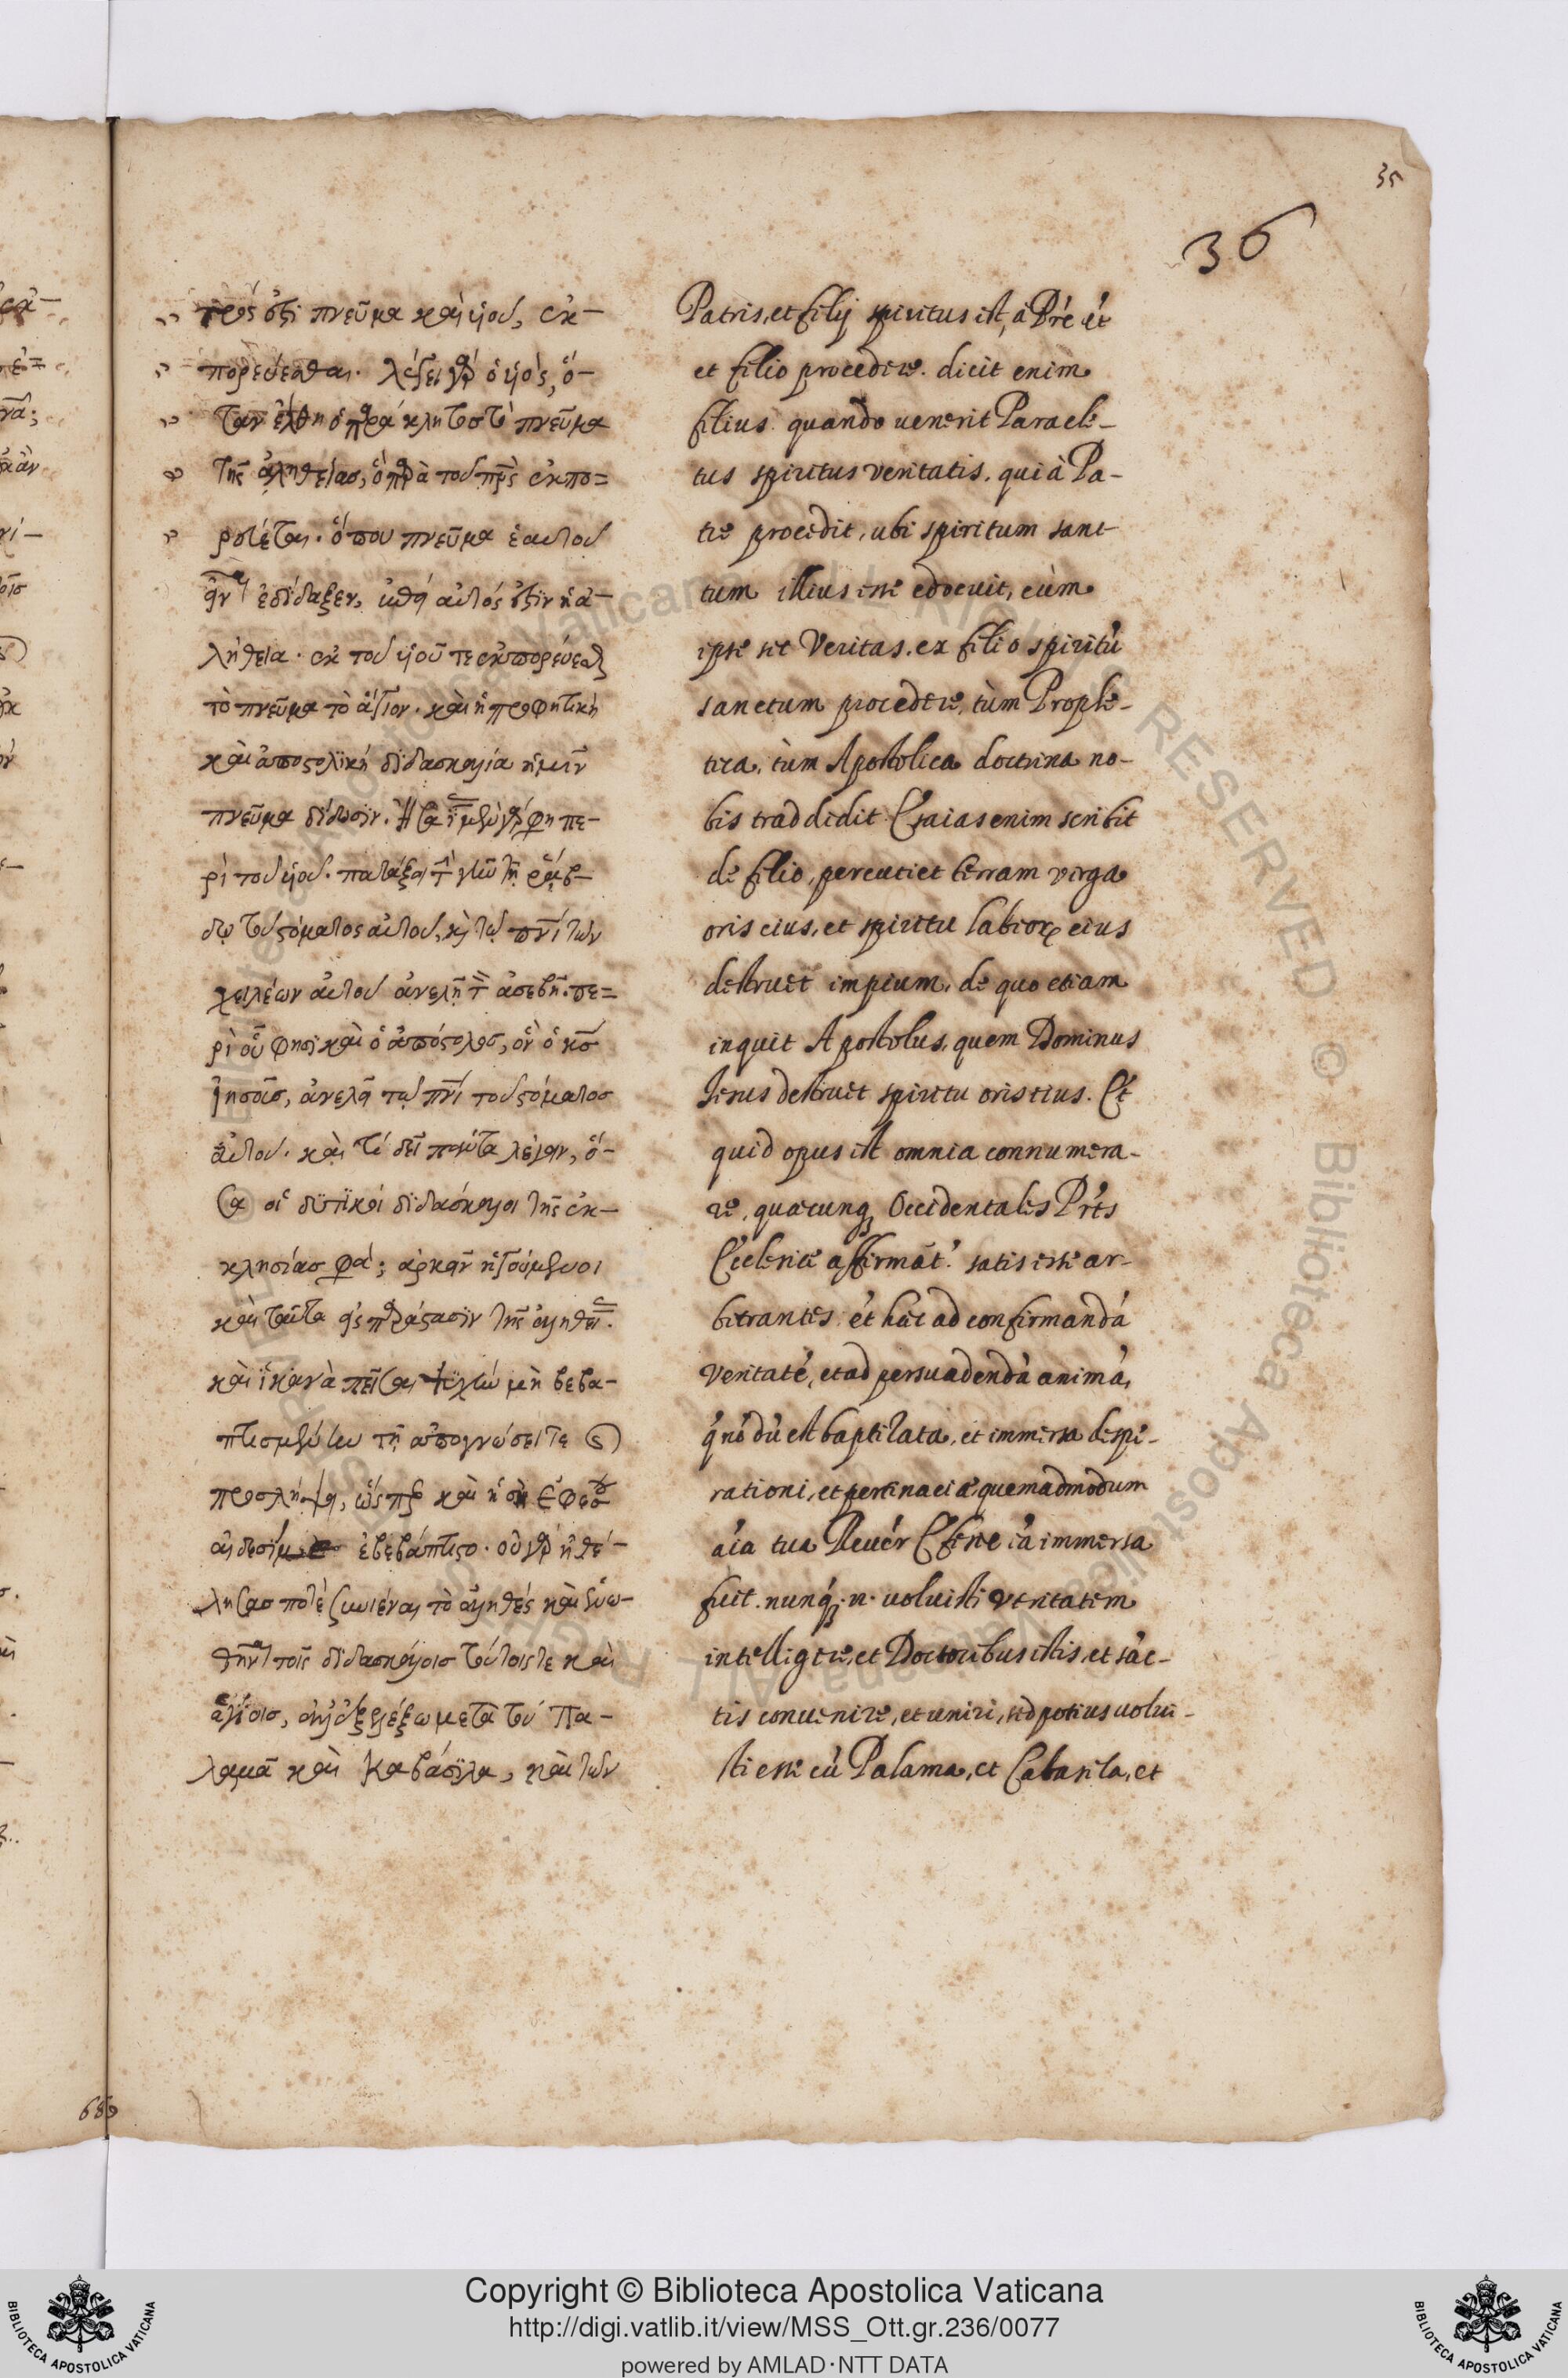 35
36
πρὸς ἐστὶ πνεῦμα καὶ υἱοῦ, ἐκ-
πορεύεσθαι. λέγει γὰρ ὁ υἱός, ὅ-
ταν ἔλθη ὁ παράκλητος τὸ πνεῦμα
τῆς ἀληθείας, ὃ παρὰ τοῦ πρς ἐκπο=
ρεύεται. ὅπου πνεῦμα ἑαυτοῦ
ἐδίδαξεν, αὐτός ἐστιν ἡ ἀ-
λήθεια. ἐκ τοῦ υἱοῦ τε ἐκπορεύεσθαι
τὸ πνεῦμα τὸ ἅγιον. καὶ ἡ προφητικὴ
καὶ ἀποστολικὴ διδασκαλία ἡμῖν
πνεῦμα δίδωσιν. γράφη πε-
ρὶ τοῦ υἱοῦ. πατάξει τ γῆν τῆ ῥάβ-
δω τοῦ στόματος αὐτοῦ, κ τῶ πνι τῶν
χειλέων αὐτοῦ ἀνελῆ τ ἀσεβῆ. πε=
ρὶ οὗ φησὶ καὶ ὁ ἀπόστολος, ὃν ὁ κς
ἰησοῦς, ἀνελεῖ τῶ πνι τοῦ στόματος
αὐτοῦ. καὶ τί δεῖ πάντα λέγειν, ὅ-
σα οἱ δυτικοὶ διδάσκαλοι τῆς ἐκ-
κλησίας φα; ἀρκεῖν ἡγούμενοι
καὶ ταῦτα εἰς παράστασιν τῆς ἀληθει.
καὶ ἱκανὰ πεῖσαι ψυχὴν μὴ βεβα-
πτισμένην τῆ ἀπογνώσει τε
προσλήψει, ὥσπερ καὶ ἡ σὴ Ἐφέσου
αἰδεσιμ ἐβεβάπτιστο. οὐ γὰρ ἠθέ-
λησας ποτὲ ξυνιέναι τὸ ἀληθές καὶ ἑνω-
θῆναι τοῖς διδασκάλοις τούτοις τε καὶ
ἁγίοις, ἀλλ μετὰ τοῦ Πα-
λαμᾶ καὶ Καβάσιλα, καὶ τῶν
Patris, et filij spiritus est, à Pŕe et
et filio procedere. dicit enim
filius. quando uenerit Paracle-
tus spiritus veritatis. qui à Pa-
tre procedit, ubi spiritum sanc-
tum illius esse edocuit, cùm
ipse sit Veritas. ex filio spiritū
sanctum procedere, tùm Prophe-
tica, tùm Apostolica doctrina no-
bis traddidit Esaias enim scribit
de filio, percutiet terram virga
oris eius, et spiritu labiorꝝ eius
destruet impium, de quo etiam
inquit Apostolus, quem Dominus
Iesus destruet spiritu oris eius. Et
quid opus est omnia connumera-
re, quæcunqꝫ Occidentales Prēs
Ecclesiæ affirmāt. satis esse ar-
bitrantes et hæc ad confirmandā
veritatē, et ad persuadendā animā,
q̄ nōdū est baptizata, et immersa despe-
rationi, et pertinaciæ quemadmodum
aīa tua Reuēr Ephesie iā immersa
fuit. nunqꝫ .n. uoluisti veritatem
intelligere, et Doctoribus istis, et sāc-
tis conuenire, et uniri, sed potius uolui-
sti esse cū Palama, et Cabasila, et
689
Copyright © Biblioteca Apostolica Vaticana
http://digi.vatlib.it/view/MSS_Ott.gr.236/0077
powered by AMLAD·NTT DATA
BIBLIOTECA APOSTOLICA VATICANA
BIBLIOTECA APOSTOLICA VATICANA